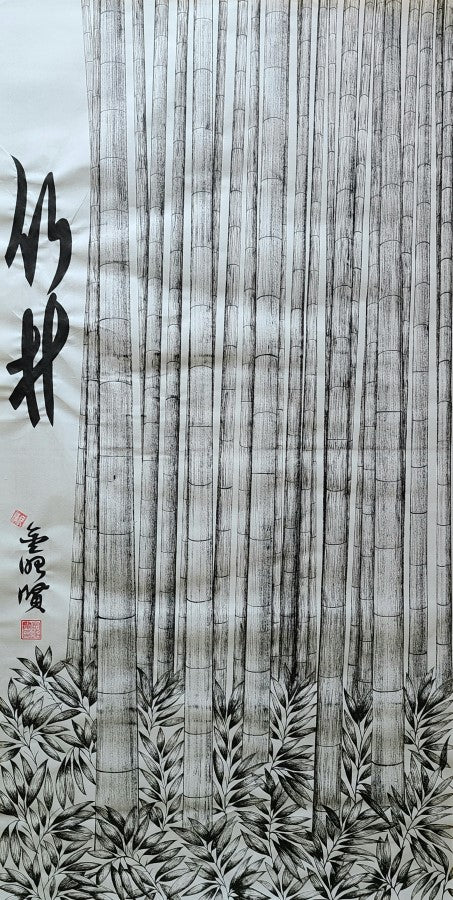 竹林
金明賢